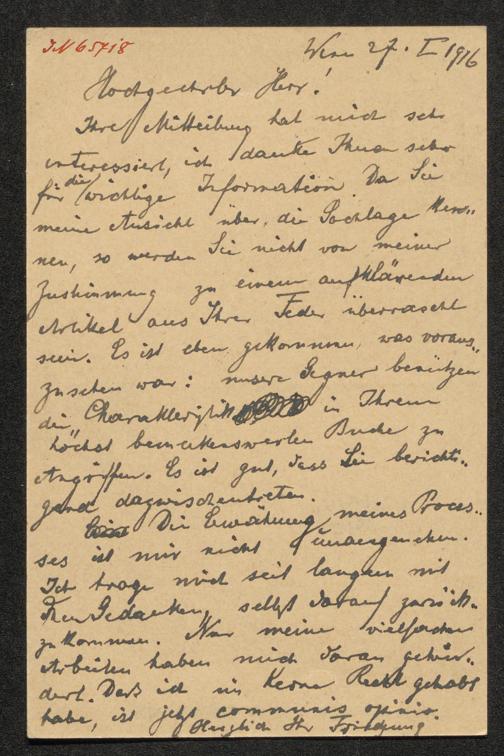 IN 65718
Wien 27. I 1916
Hochgeehrter Herr!
Ihre Mitteilung hat mich sehr
interessiert, ich danke Ihnen sehr
für die wichtige Information. Da Sie
meine Ansicht über die Sachlage ken-
nen, so werden Sie nicht von meiner
Zustimmung zu einem aufklärenden
Artikel aus Ihrer Feder überrascht
sein. Es ist eben gekommen, was voraus-
zusehen war: unsere Gegner benützen
die „Charakteristik in Ihrem
höchst bemerkenswerten Buche zu
Angriffen. Es ist gut, dass Sie berichti-
gend dazwischentreten.
Die Erwähnung meines Proces-
ses ist mir nicht unangenehm.
Ich trage mich seit langem mit
dem Gedanken, selbst darauf zurück-
zukommen. Nur meine vielfachen
Arbeiten haben mich daran gehin-
dert. Daß ich im Kerne Recht gehabt
habe, ist jetzt communis opinio.
Herzlich Ihr Friedjung.